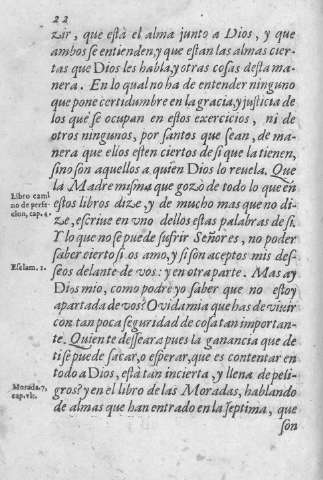 22
zir, que està el alma junto a Dios, y que
ambos se entienden, y que estan las almas cier-
tas que Dios les habla, y otras cosas desta ma-
nera. En lo qual no ha de entender ninguno
que pone certidumbre en la gracia, y justicia de
los que se ocupan en estos exercicios, ni de
otros ningunos, por santos que sean, de ma-
nera que ellos esten ciertos de si que la tienen,
sino son aquellos a quien Dios lo reuela. Que
la Madre misma que gozò de todo lo que en
Libro cami
no de perfe-
cion, cap. 4.
estos libros dize, y de mucho mas que no di-
ze, escriue en vno dellos estas palabras de si.
Y lo que no se puede sufrir Señores, no poder
saber cierto si os amo, y si son aceptos mis des-
Esclam. 1.
seos delante de vos: y en otra parte. Mas ay
Dios mio, como podre yo saber que no estoy
apartada de vos? O vida mia que has de viuir
con tan poca seguridad de cosa tan importan-
te. Quien te desseara pues la ganancia que de
ti se puede sacar, o esperar, que es contentar en
todo a Dios, està tan incierta, y llena de peli-
Morada. 7,
cap. vlt.
gros? y en el libro de las Moradas, hablando
de almas que han entrado en la septima, que
son